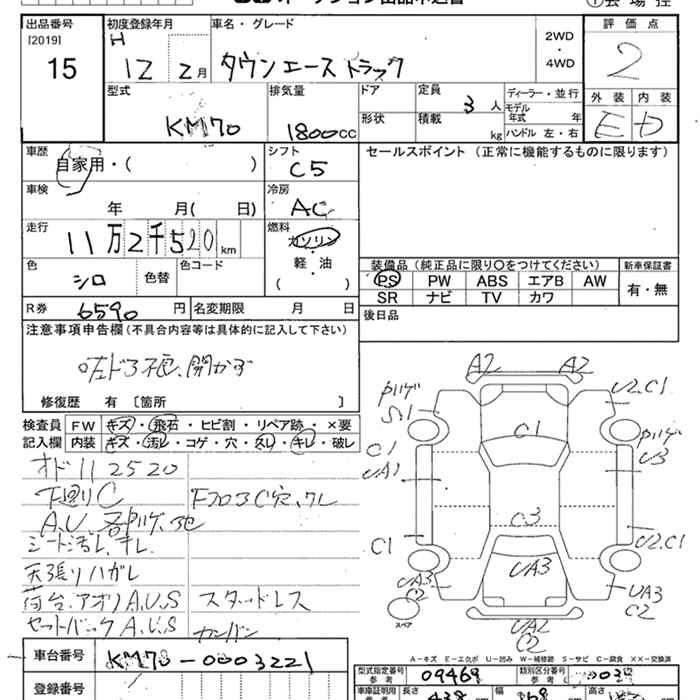 出品番号 初度登録年月 車名・グレード 2WD・4WD 評価点
[2019]
15
H 12 2月
タウンエーストラック
2
型式 排気量 ドア 定員 ディーラー・並行
KM70 1800cc 3人
モデル年式 年
形状 積載 kg ハンドル 左・右
外装 内装
E D
車歴 自家用・( )
シフト C5
セールスポイント (正常に機能するものに限ります)
車検 年 月( 日)
冷房 AC
走行 11万2千520km
燃料 ガソリン
軽・油
( )
色 シロ 色替 色コード
装備品 (純正品に限り○をつけてください) 新車保証書
PS PW ABS エアB AW 有・無
SR ナビ TV カワ
R券 6590円 名変期限 月 日
後日品
注意事項申告欄(不具合内容等は具体的に記入して下さい)
左ドア不良、開かず
修復歴 有 〔箇所 〕
検査員 FW キズ・飛石・ヒビ割・リペア跡・×要
記入欄 内装 キズ・汚レ・コゲ・穴・スレ・キレ・破レ
オド112520
下廻りC FフロアC穴、ワレ
A.U
シート汚レ、キレ
天張りハガレ
荷台、アオリA.U.S スタッドレス
セットバックA.U.S カンバン
A2 A2
U2.C1
S1
C1
C1
UA1
U3
C3
C1
U2.C1
UA3
UA3
C2
UA3
C2
スペア
UA2
C2
A-キズ E-エクボ U-凹み W-補修跡 S-サビ C-腐食 XX-交換済
車台番号 KM70-0003221
型式指定番号 参考 09469 類別区分番号 参考 003
登録番号
車庫証明用 長さ 幅 高さ